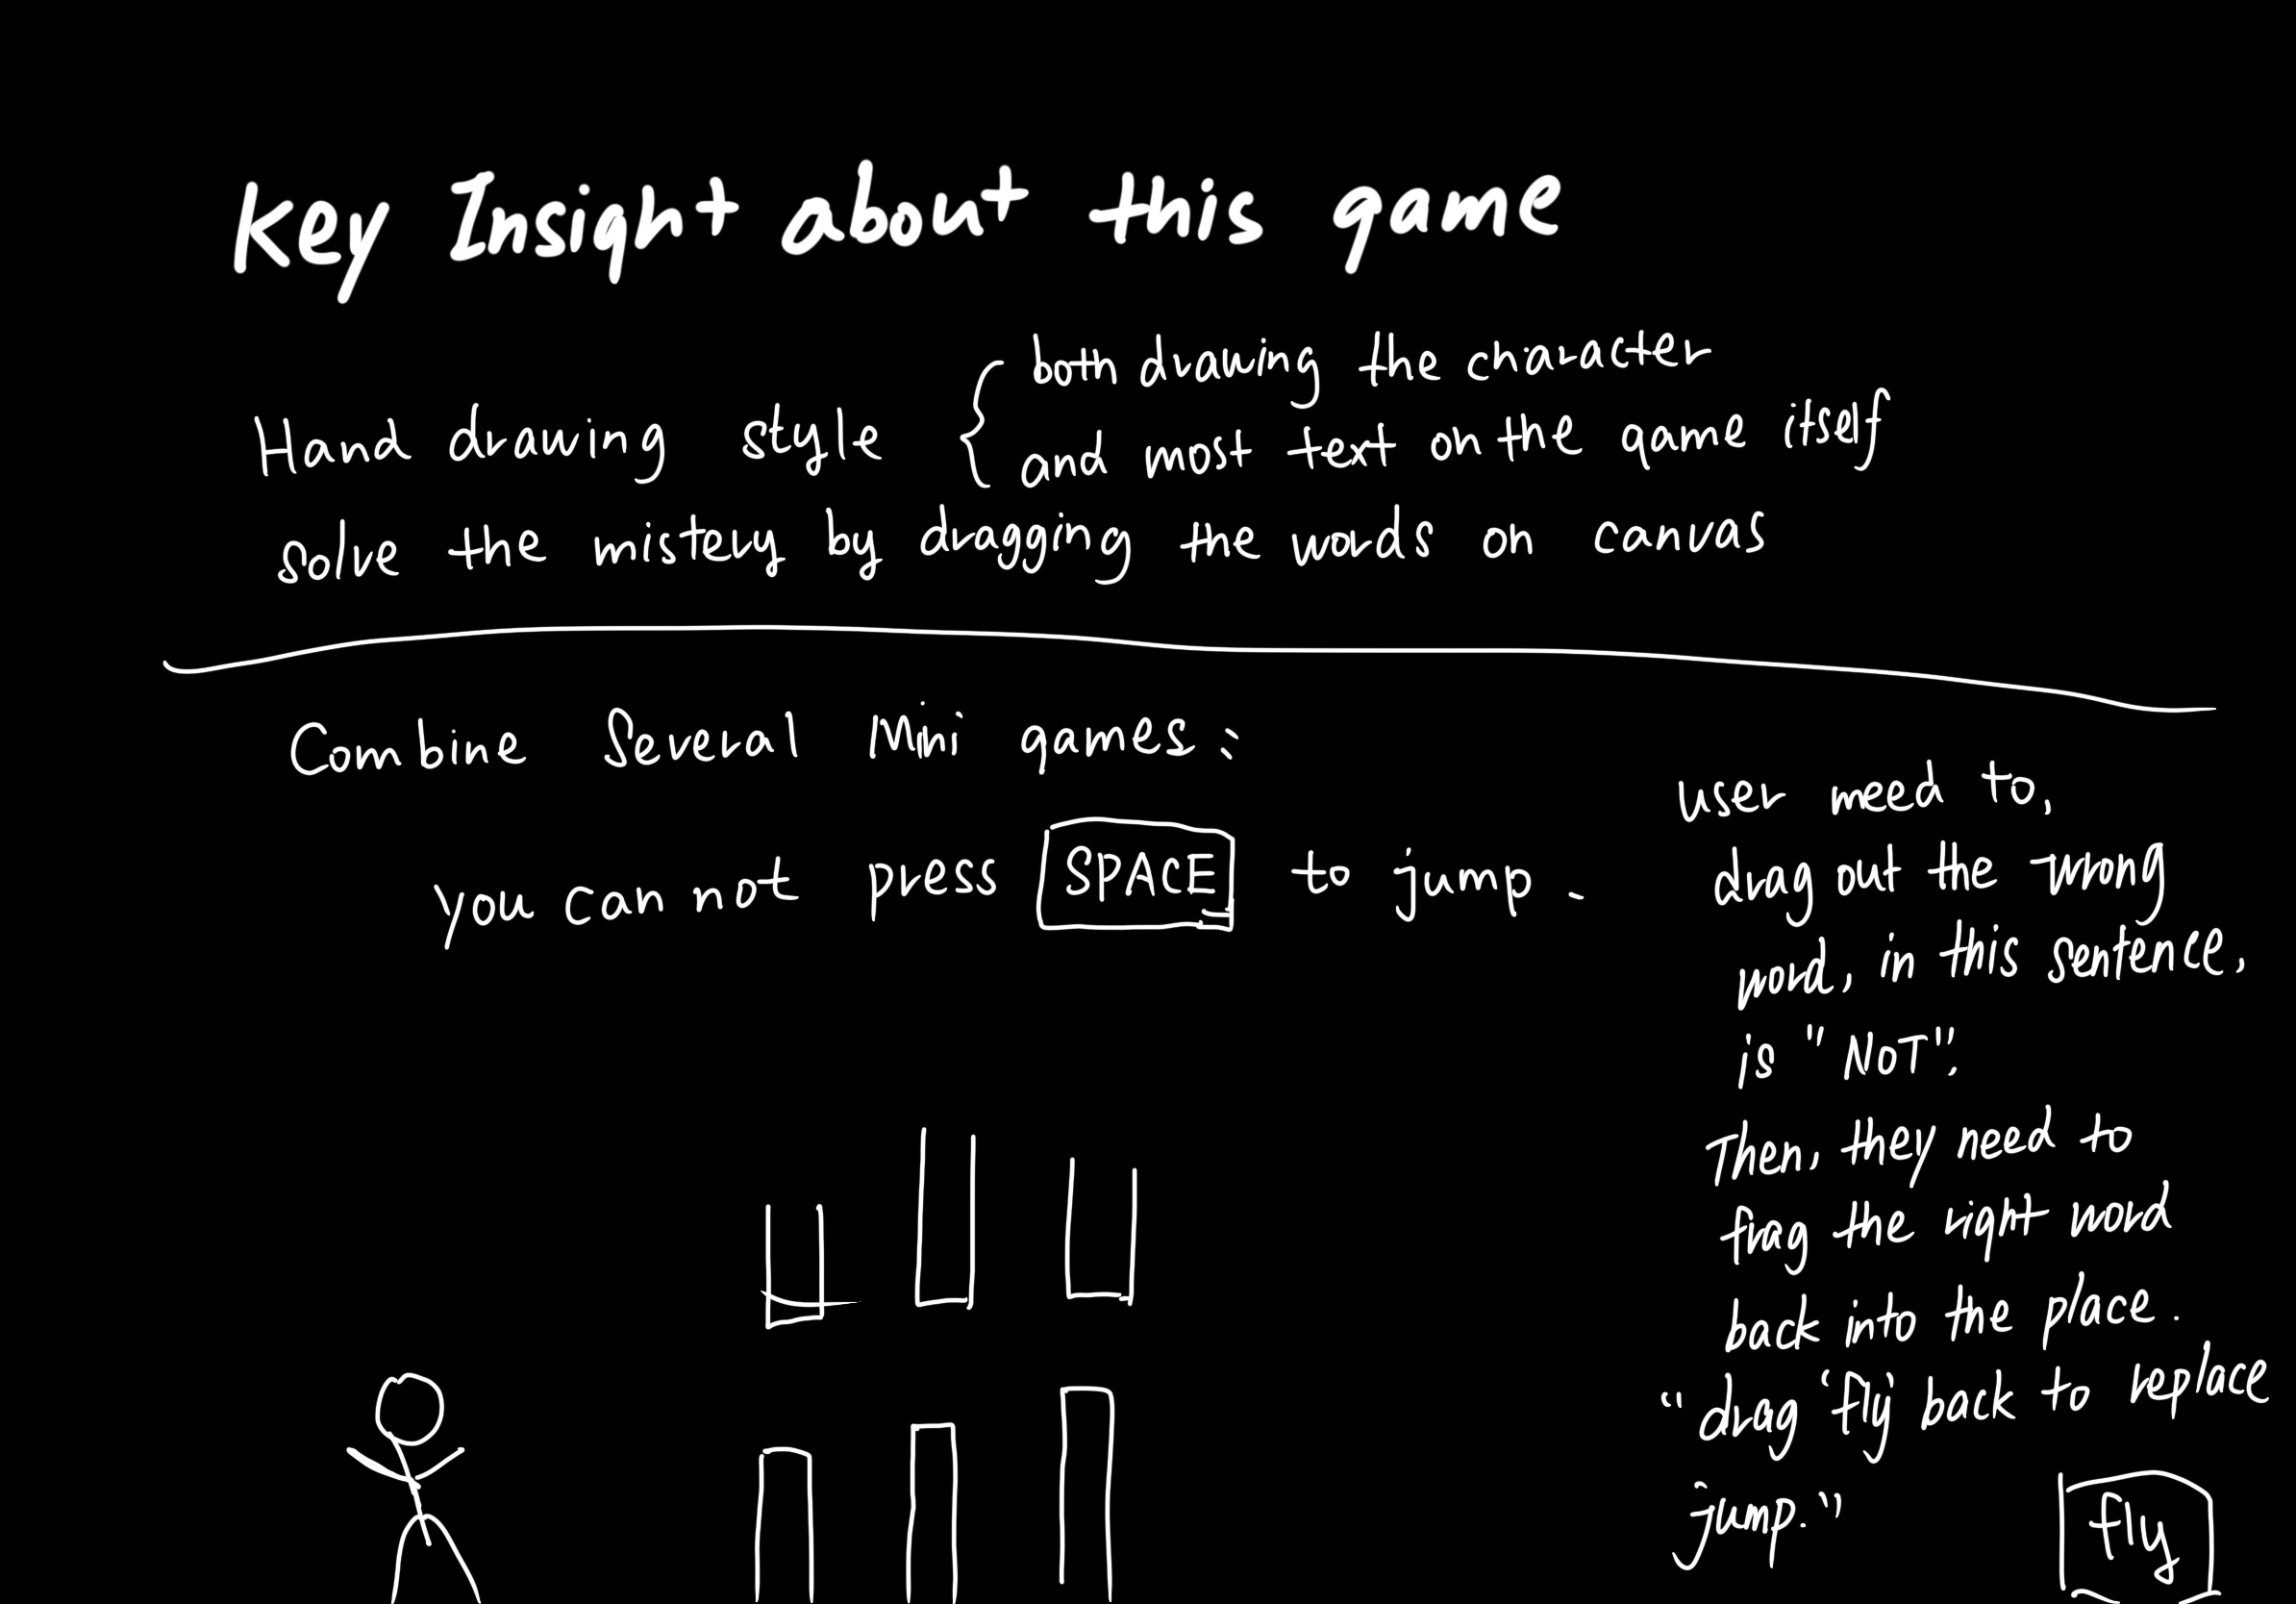 Key Insight about this game
Hand drawing style { both drawing the character
and most text on the game itself
solve the mistery by dragging the words on canvas
Combine Several Mini games:
you can not press SPACE to jump.
user need to,
drag out the wrong
word, in this sentence,
is "NOT",
Then, they need to
frag the right word
back into the place.
"drag 'fly' back to replace
jump."
fly